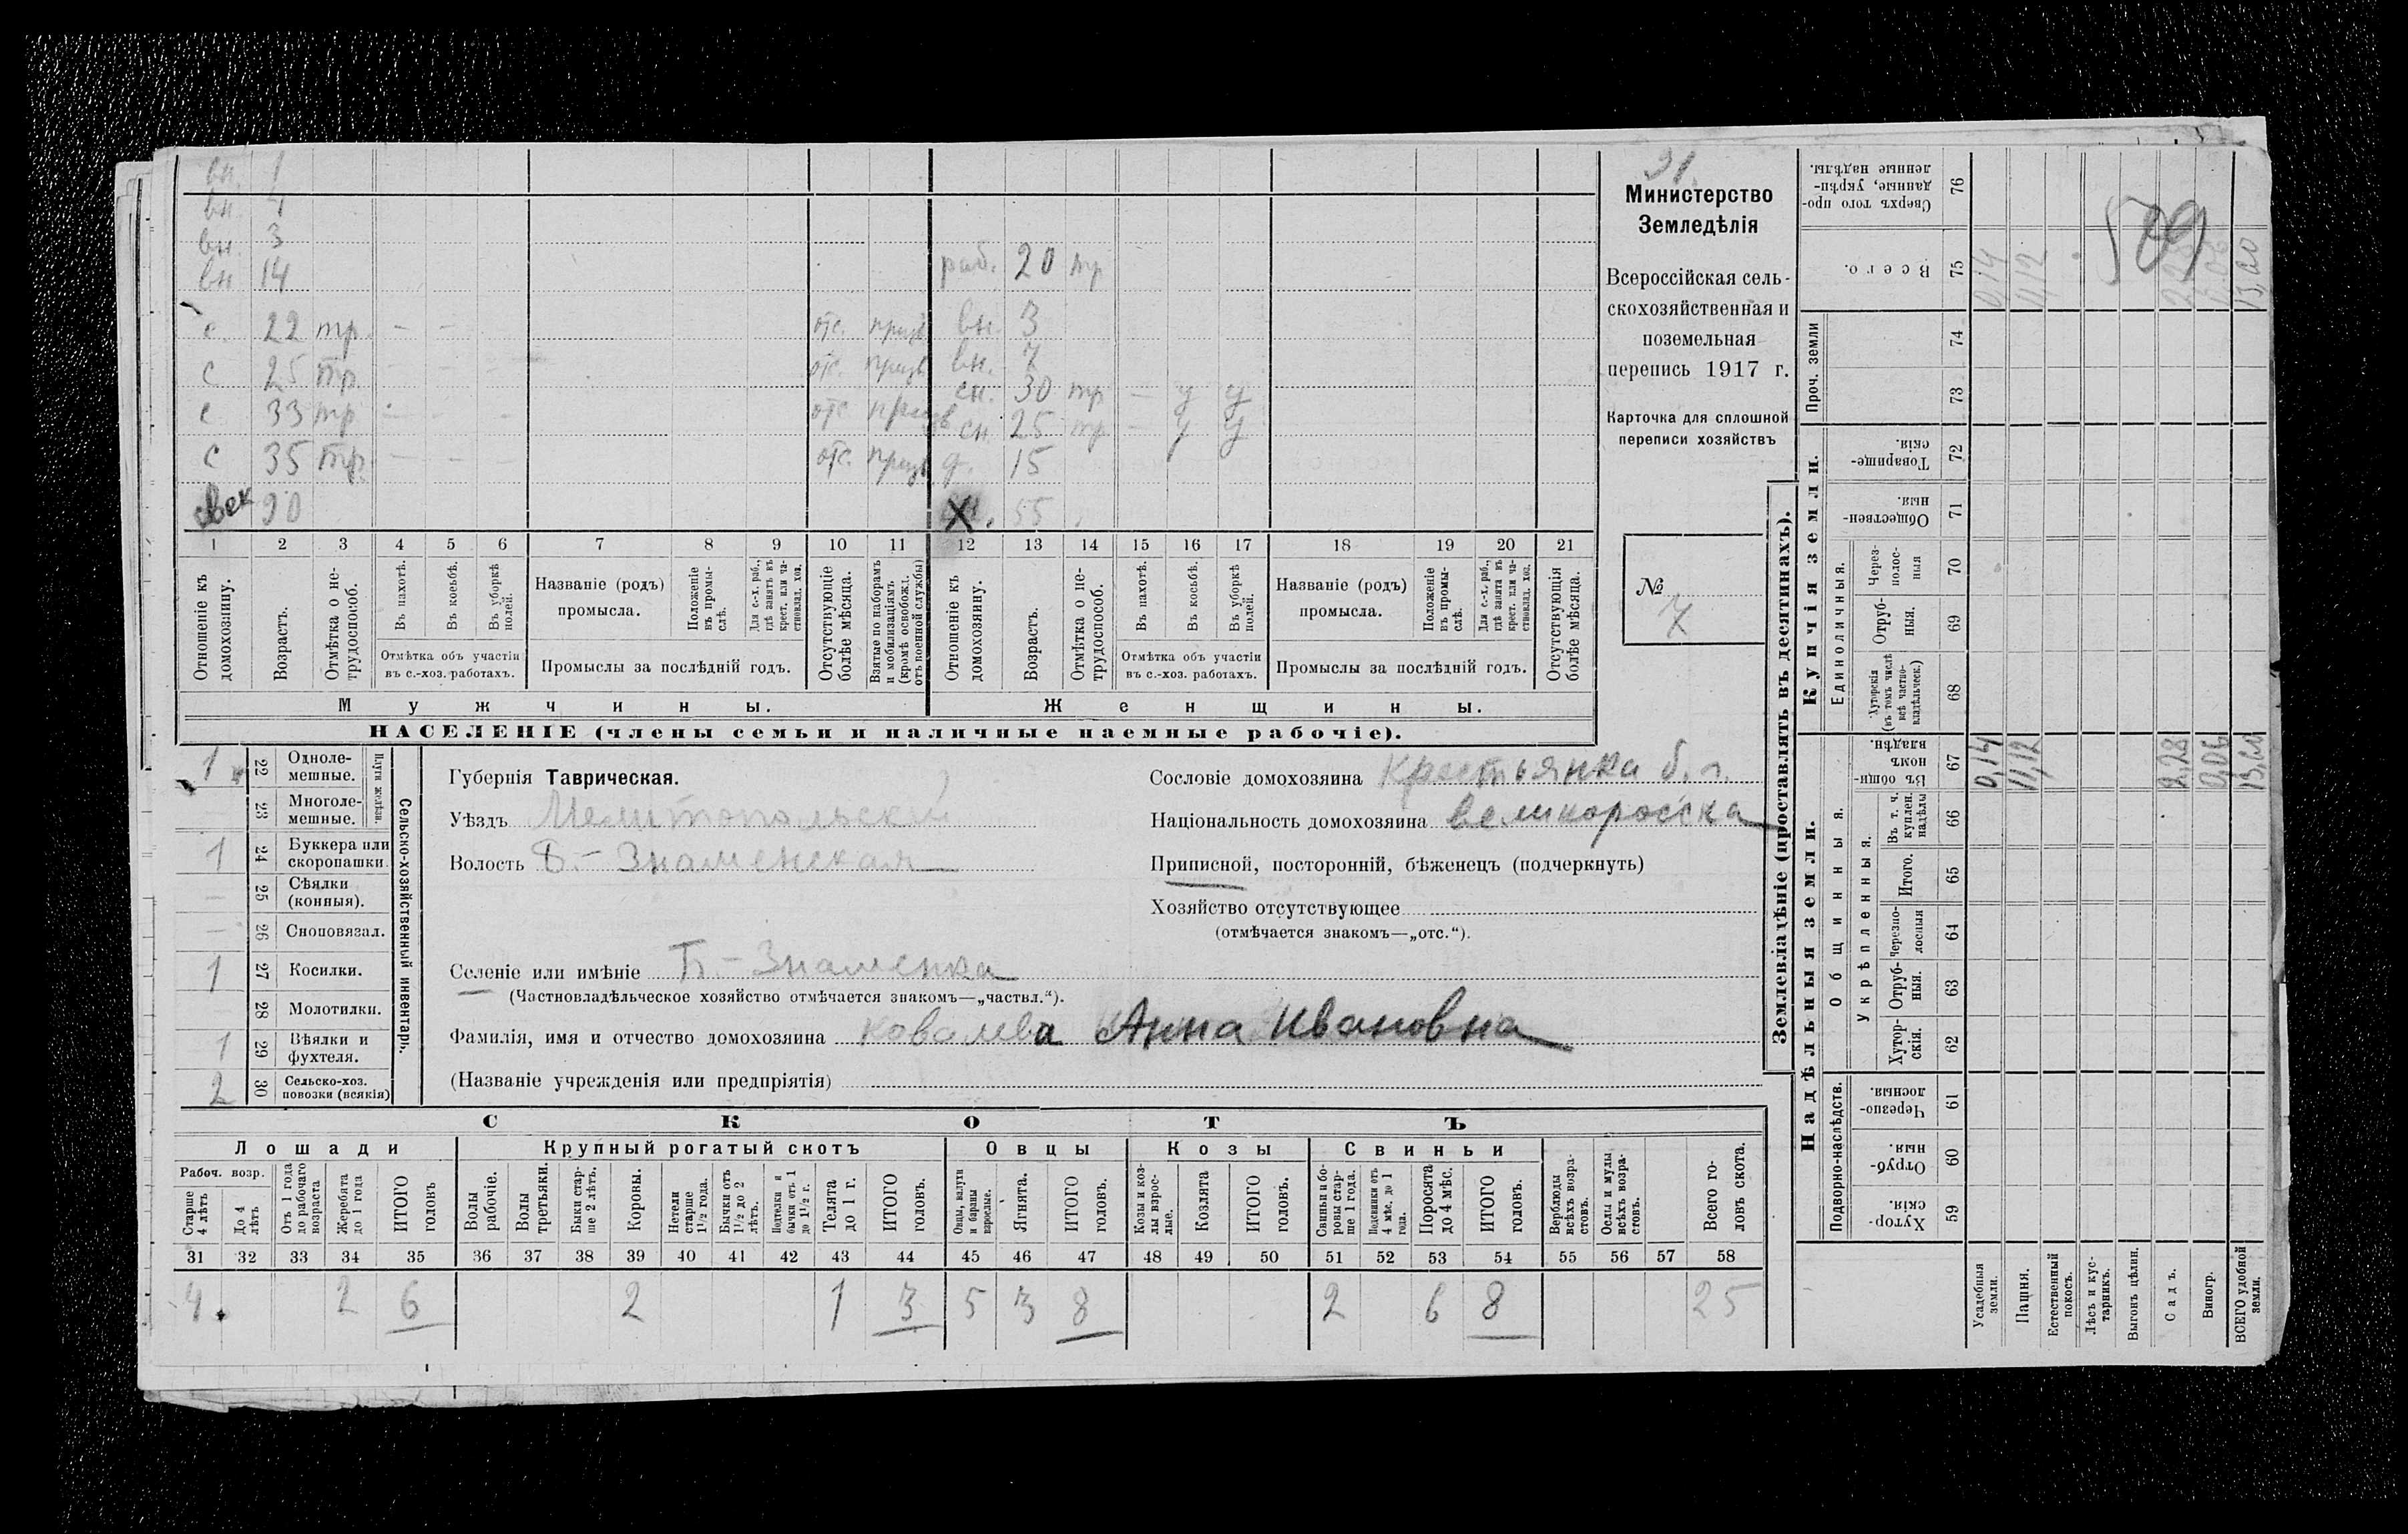 91.
Министерство
Земледѣлія
Всероссійская сель-
скохозяйственная и
поземельная
перепись 1917 г.
Карточка для сплошной
переписи хозяйствъ
№
7
вн. 1
вн. 4
вн. 3
вн 14 раб. 20 тр
с. 22 тр. — — отс. призв вн. 3
с 25 тр. — — — отс. призв вн. 7
сн. 30 тр — у у
с 33 тр — — — отс призв сн 25 тр — у у
с 35 тр. — — — отс. призв д. 15
свек 90 х. 55
1 2 3 4 5 6 7 8 9 10 11 12 13 14 15 16 17 18 19 20 21
Отношеніе къ домохозяину.
Возрастъ.
Отмѣтка о не-трудоспособ.
Въ пахотѣ.
Въ косьбѣ.
Въ уборкѣ полей.
Отмѣтка объ участіи въ с.-хоз. работахъ.
Названіе (родъ) промысла.
Положеніе въ промы-слѣ.
Для с.-х. раб., гдѣ занятъ въ крест. или ча-стновлад. хоз.
Промыслы за послѣдній годъ.
Отсутствующіе болѣе мѣсяца.
Взятые по наборамъ и мобилизаціямъ (кромѣ освобожд. отъ военной службы)
Отношеніе къ домохозяину.
Возрастъ.
Отмѣтка о не-трудоспособ.
Въ пахотѣ.
Въ косьбѣ.
Въ уборкѣ полей.
Отмѣтка объ участіи въ с.-хоз. работахъ.
Названіе (родъ) промысла.
Положеніе въ промы-слѣ.
Для с.-х. раб., гдѣ занята въ крест. или ча-стновлад. хоз.
Промыслы за послѣдній годъ.
Отсутствующія болѣе мѣсяца.
Мужчины. Женщины.
НАСЕЛЕНІЕ (члены семьи и наличные наемные рабочіе).
Сельско-хозяйственный инвентарь.
Плуги желѣзн.
1 22 Одноле-мешные.
— 23 Многоле-мешные.
1 24 Буккера или скоропашки.
— 25 Сѣялки (конныя).
— 26 Сноповязал.
1 27 Косилки.
— 28 Молотилки.
1 29 Вѣялки и фухтеля.
2 30 Сельско-хоз. повозки (всякія)
Губернія Таврическая.
Уѣздъ Мелитопольскій
Волость Б.-Знаменская
Селеніе или имѣніе Б.-Знаменка
(Частновладѣльческое хозяйство отмѣчается знакомъ—„частвл.“).
Фамилія, имя и отчество домохозяина Ковалева Анна Ивановна
(Названіе учрежденія или предпріятія)
Сословіе домохозяина Крестьянка б. п.
Національность домохозяина великоросска
Приписной, посторонній, бѣженецъ (подчеркнуть)
Хозяйство отсутствующее
(отмѣчается знакомъ—„отс.“).
СКОТЪ
Лошади Крупный рогатый скотъ Овцы Козы Свиньи
Рабоч. возр.
Старше 4 лѣтъ
До 4 лѣтъ
Отъ 1 года до рабочаго возраста
Жеребята до 1 года
ИТОГО головъ
Волы рабочіе.
Волы третьяки.
Быки стар-ше 2 лѣтъ.
Коровы.
Нетели старше 1½ года.
Бычки отъ 1½ до 2 лѣтъ.
Подтелки и бычки отъ 1 до 1½ г.
Телята до 1 г.
ИТОГО головъ.
Овцы, валухи и бараны взрослые.
Ягнята.
ИТОГО головъ.
Козы и коз-лы взрос-лые.
Козлята
ИТОГО головъ.
Свиньи и бо-ровы стар-ше 1 года.
Подсвинки отъ 4 мѣс. до 1 года.
Поросята до 4 мѣс.
ИТОГО головъ.
Верблюды всѣхъ возра-стовъ.
Ослы и мулы всѣхъ возра-стовъ.
Всего го-ловъ скота.
31 32 33 34 35 36 37 38 39 40 41 42 43 44 45 46 47 48 49 50 51 52 53 54 55 56 57 58
4 2 6 2 1 3 5 3 8 2 6 8 25
Землевладѣніе (проставлять въ десятинахъ).
Надѣльныя земли. Купчія земли. Проч. земли
Подворно-наслѣдств.
Общинныя.
Укрѣпленныя.
Единоличныя.
Хутор-скія. 59
Отруб-ныя. 60
Черезпо-лосныя. 61
Хутор-скія. 62
Отруб-ныя. 63
Черезпо-лосныя 64
Итого. 65
Въ т. ч. куплен. надѣлы 66
Въ общин-номъ владѣн. 67
Хуторскія (въ томъ числѣ всѣ частно-владѣльческ.) 68
Отруб-ныя. 69
Через-полос-ныя 70
Обществен-ныя. 71
Товарище-скія. 72
73
74
Всего. 75
Сверхъ того про-данные, укрѣп-ленные надѣлы. 76
Усадебныя земли. 0,14 0,14
Пашня. 11,12 11,12
Естественный покосъ.
Лѣсъ и кус-тарникъ.
Выгонъ цѣлин.
Садъ. 2,28 2,28
Виногр. 0,06 0,06
ВСЕГО удобной земли. 13,60 13,60
509